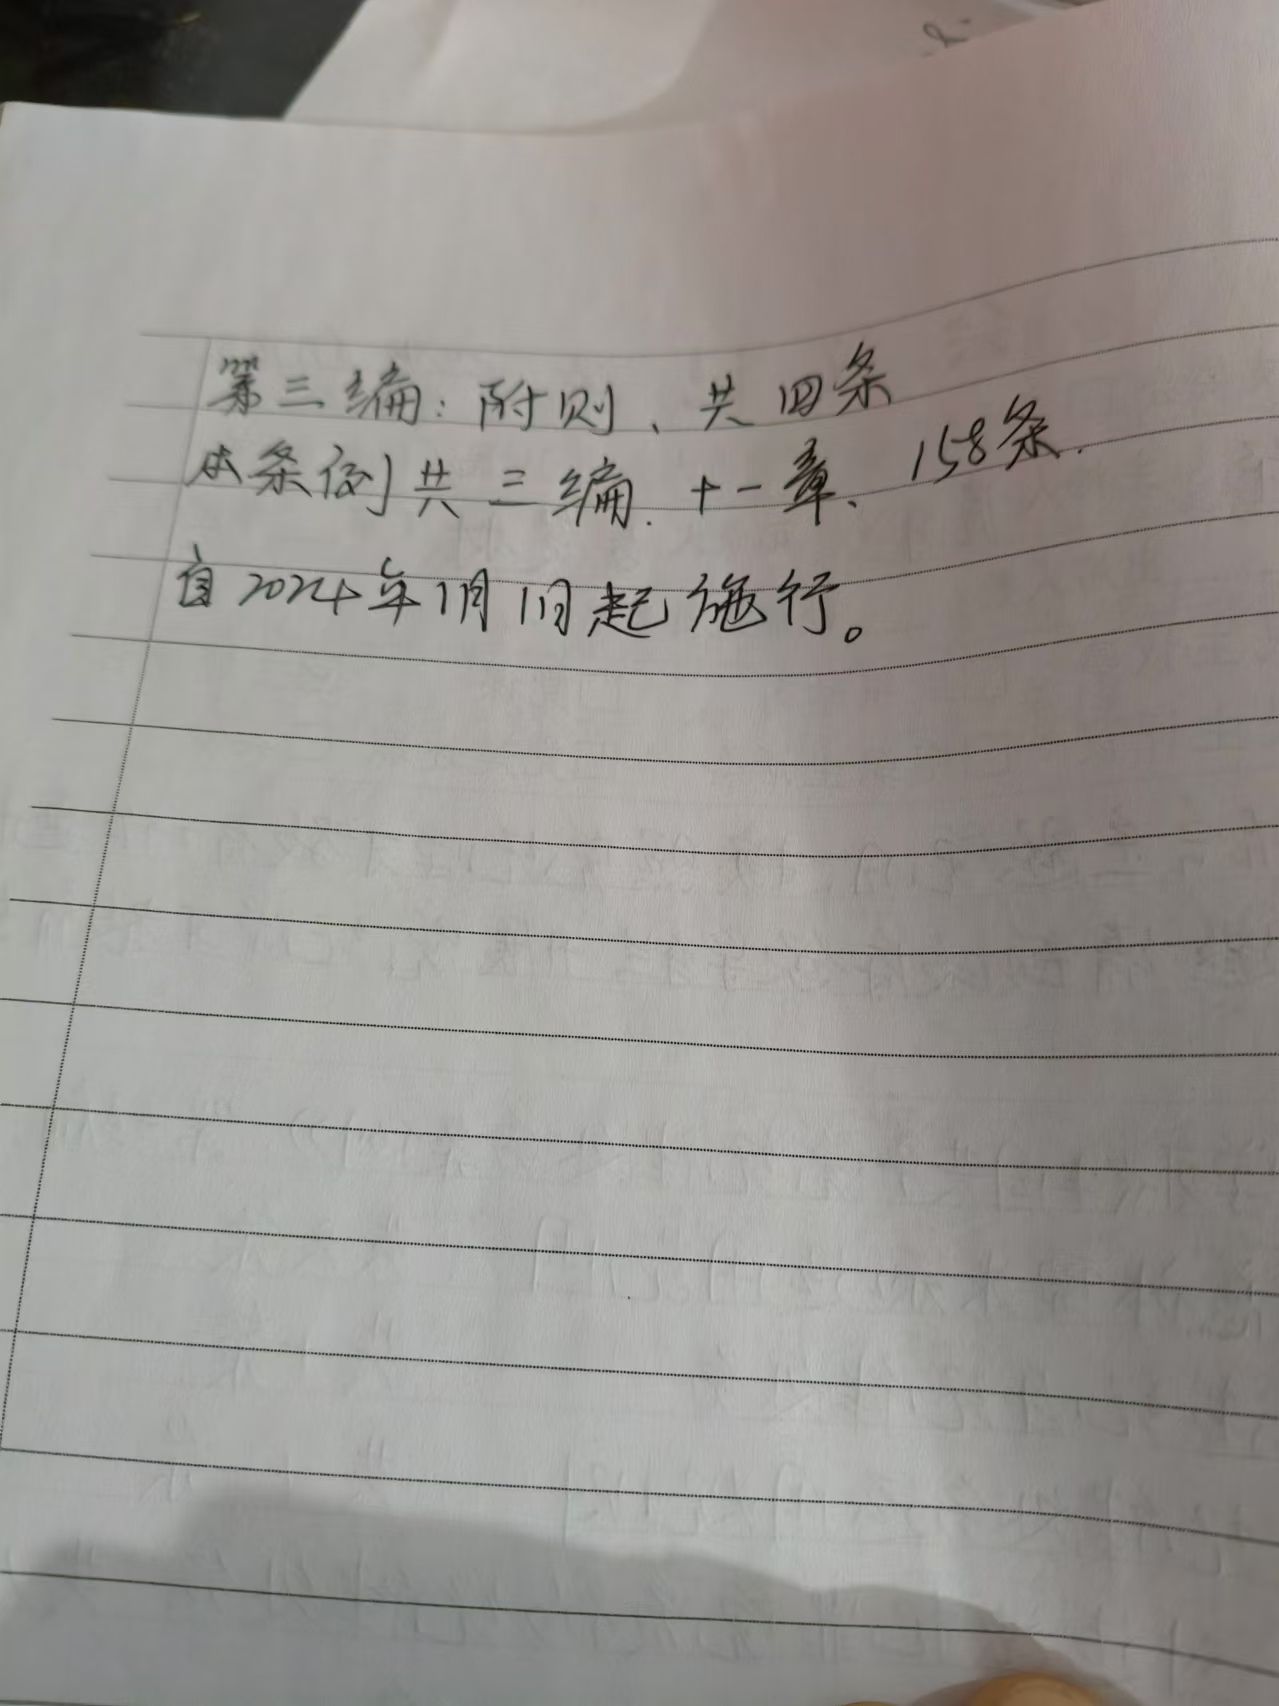 第三编：附则、共四条
本条例共三编.十一章、158条.
自2024年1月1日起施行。